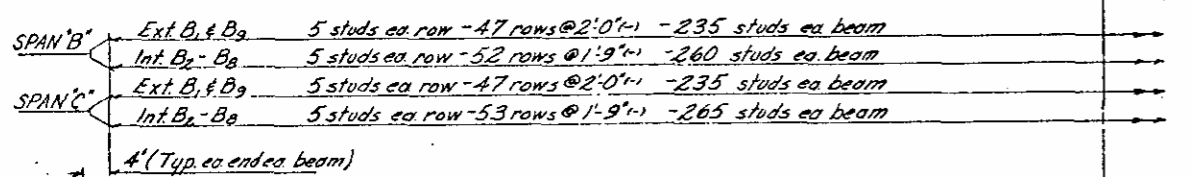 SPAN "B"
Ext. B₁ & B₉ 5 studs ea. row - 47 rows @ 2'-0"(-) - 235 studs ea. beam
Int. B₂ - B₈ 5 studs ea. row - 52 rows @ 1'-9"(-) - 260 studs ea. beam
SPAN "C"
Ext. B₁ & B₉ 5 studs ea. row - 47 rows @ 2'-0"(-) - 235 studs ea. beam
Int. B₂ - B₈ 5 studs ea. row - 53 rows @ 1'-9"(-) - 265 studs ea. beam
4" (Typ. ea. end ea. beam)